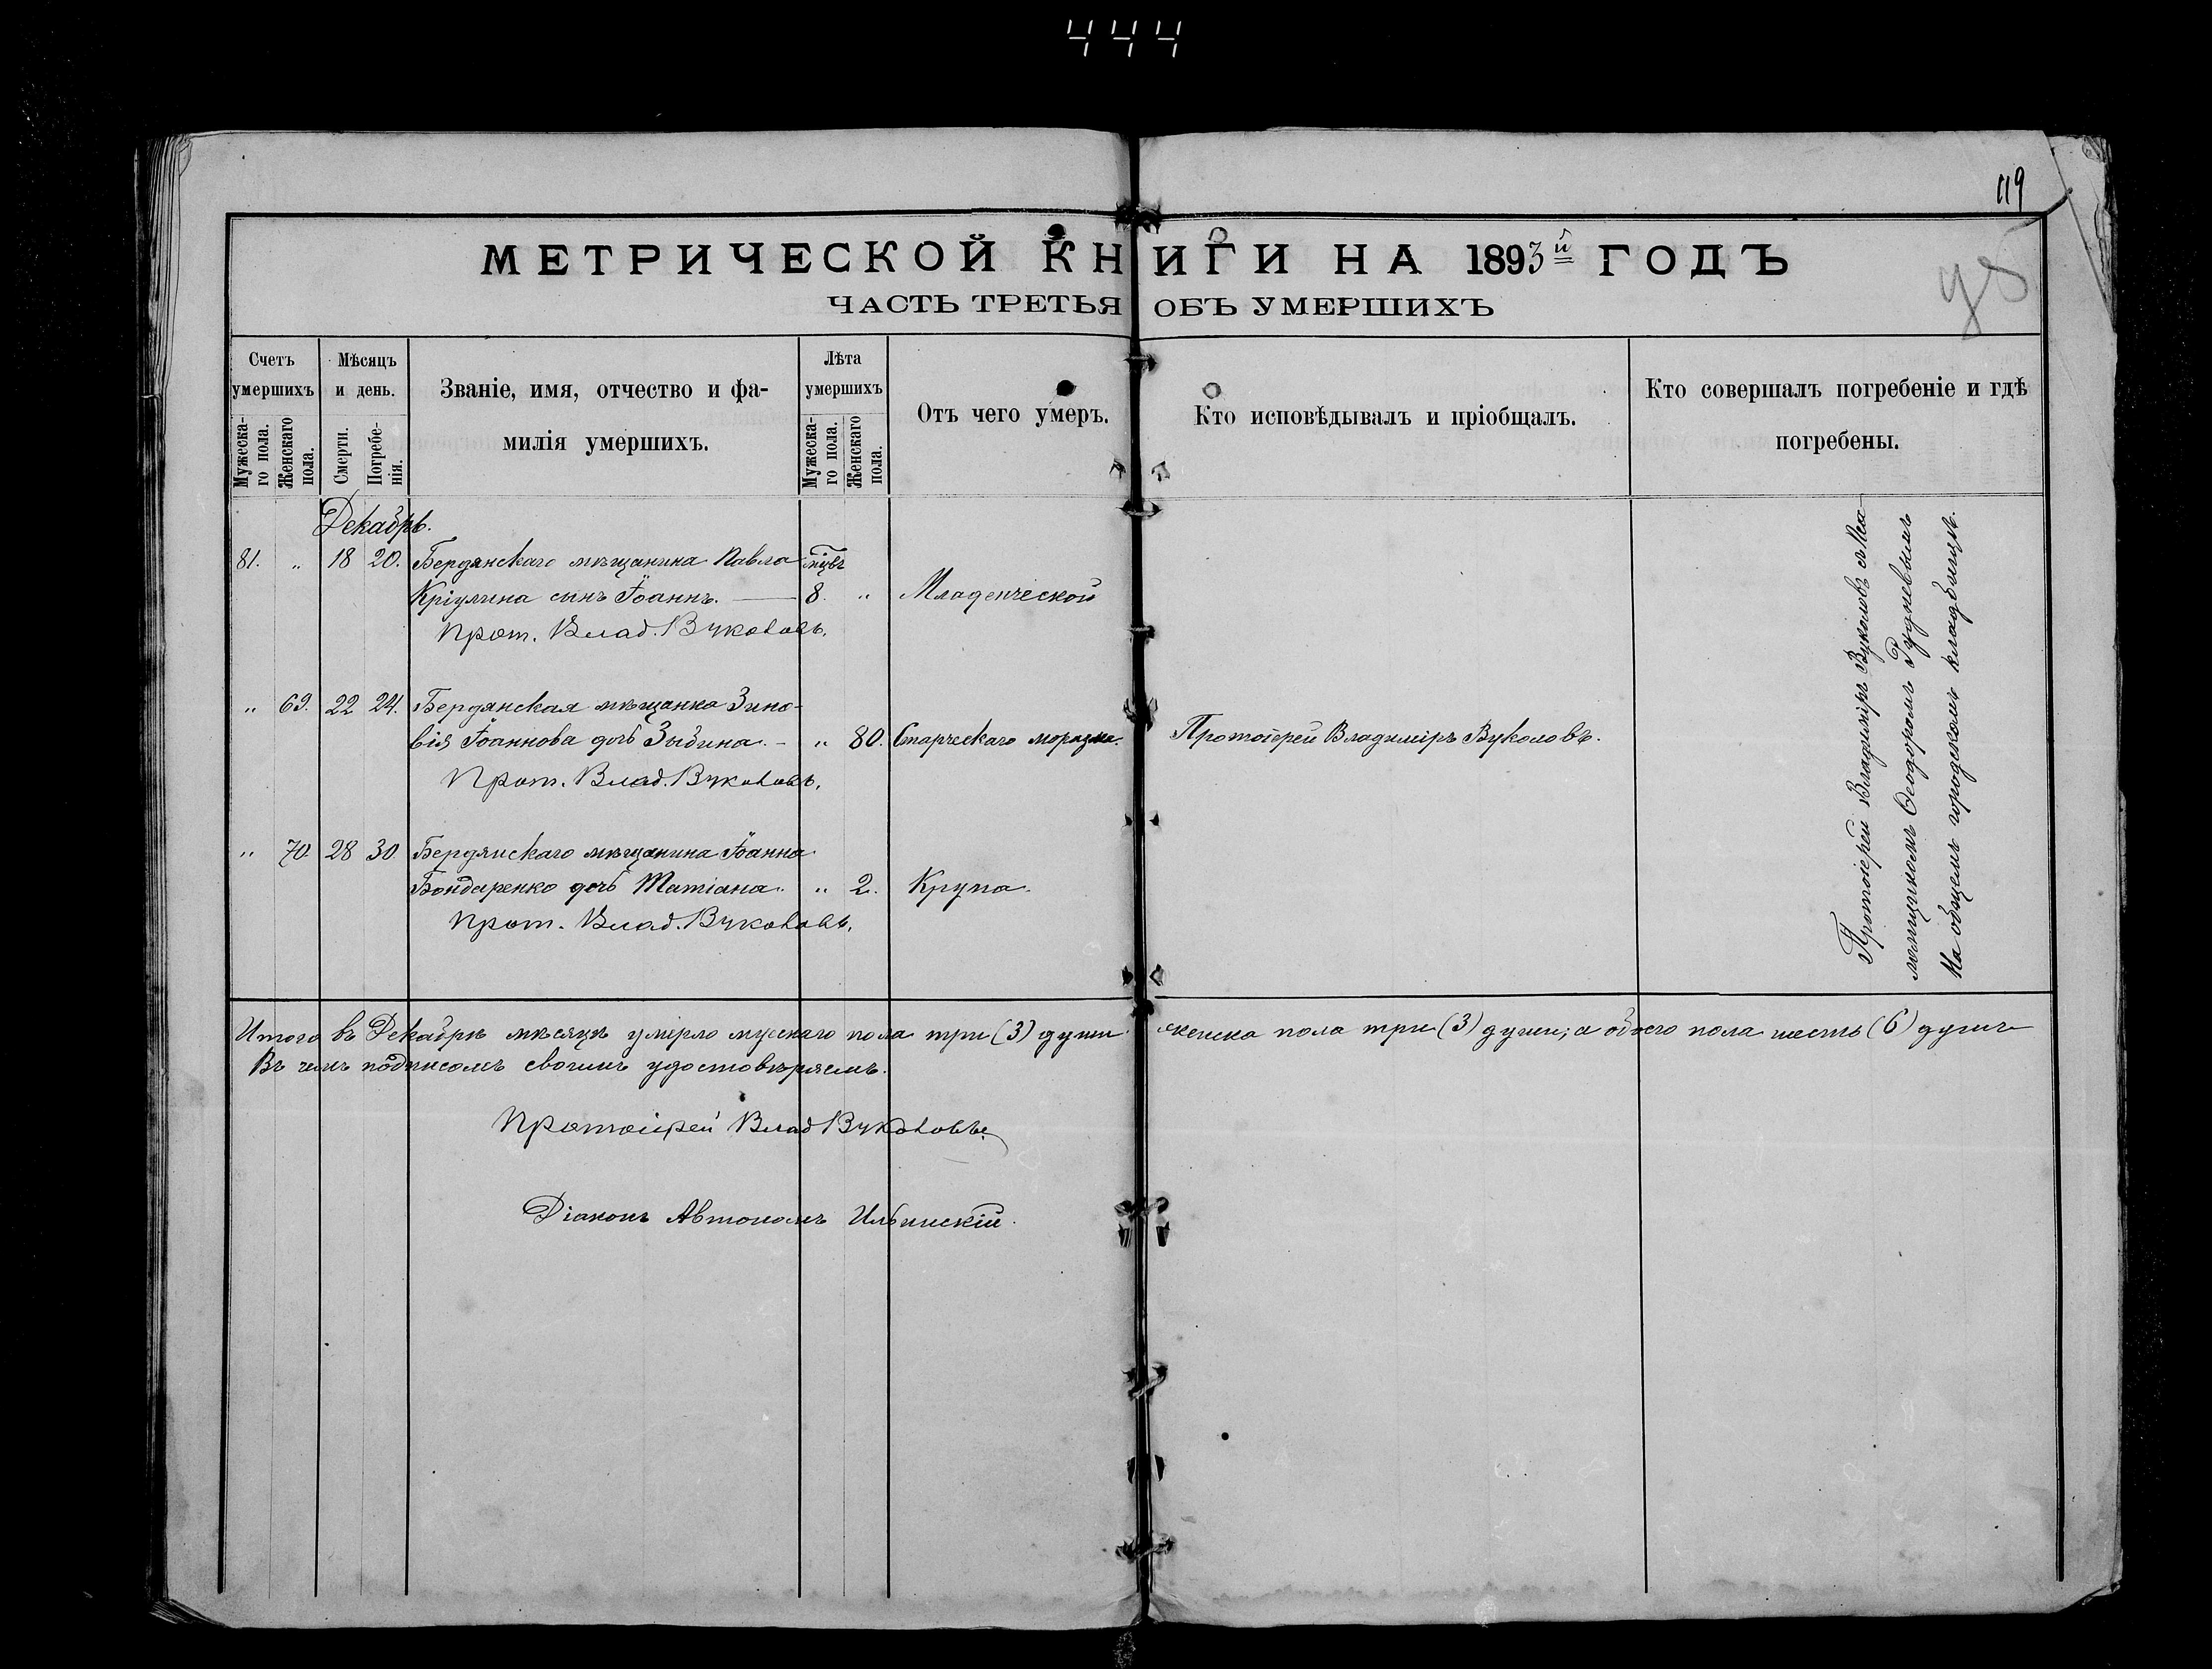 444
119
МЕТРИЧЕСКОЙ КНИГИ НА 1893й ГОДЪ
ЧАСТЬ ТРЕТЬЯ ОБЪ УМЕРШИХЪ
Счетъ умершихъ
Мужеска-го пола.
Женскаго пола.
Мѣсяцъ и день.
Смерти.
Погребе-нія.
Званіе, имя, отчество и фа-
милія умершихъ.
Лѣта умершихъ
Мужеска-го пола.
Женскаго пола.
Отъ чего умеръ.
Кто исповѣдывалъ и пріобщалъ.
Кто совершалъ погребеніе и гдѣ
погребены.
Декабрь.
81. „ 18 20. Бердянскаго мѣщанина Павла мцвъ
Кріулина сынъ Іоаннъ. — 8. „ Младенческой
Прот. Влад. Вуколовъ.
„ 69. 22 24. Бердянская мѣщанка Зино-
вія Іоаннова дочь Зыбина. - „ 80. Старческаго маразма. Протоіерей Владиміръ Вуколовъ.
Прот. Влад. Вуколовъ.
„ 70. 28 30. Бердянскаго мѣщанина Іоанна
Бондаренко дочь Татіана. „ 2. Крупа.
Прот. Влад. Вуколовъ.
Протоіерей Владиміръ Вуколовъ съ Пса-
ломщикомъ Ѳеодоромъ Рудневымъ
На общемъ городскомъ кладбищѣ.
Итого въ Декабрѣ мѣсяцѣ умерло мускаго пола три (3) души женска пола три (3) души; а обоего пола шесть (6) душъ
Въ чемъ подписомъ своимъ удостовѣряемъ.
Протоіерей Влад Вуколовъ
Діаконъ Автономъ Ильинскій.